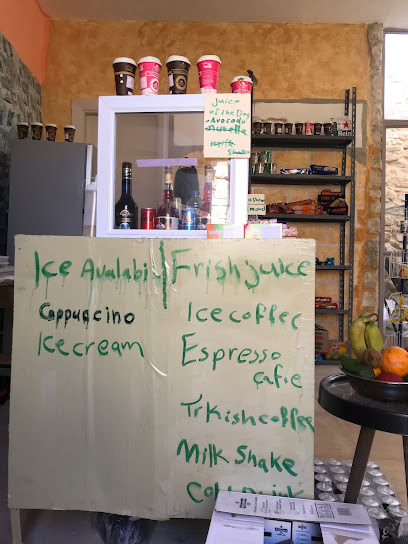 Juice
of the Day
Avocado
Ice Avalabi
Cappuccino
Icecream
Frish juice
Ice coffee
Espresso
cafie
Trkish coffee
Milk Shake
Hein